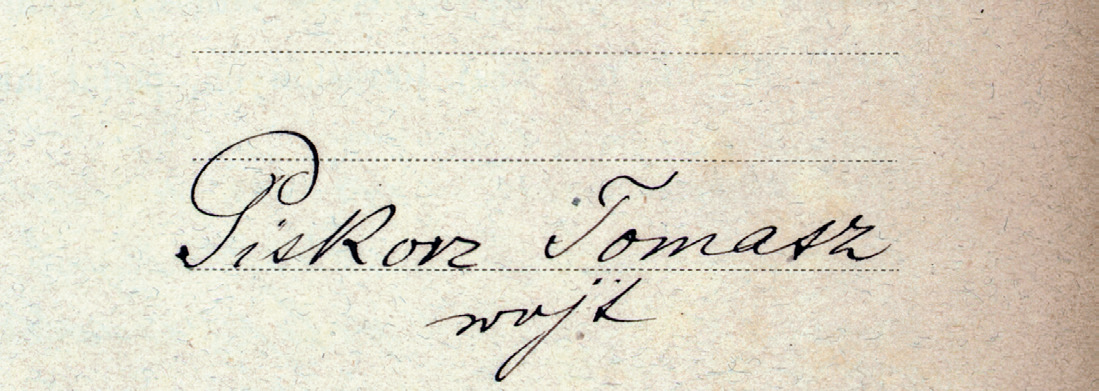 Piskorz Tomasz
wojt